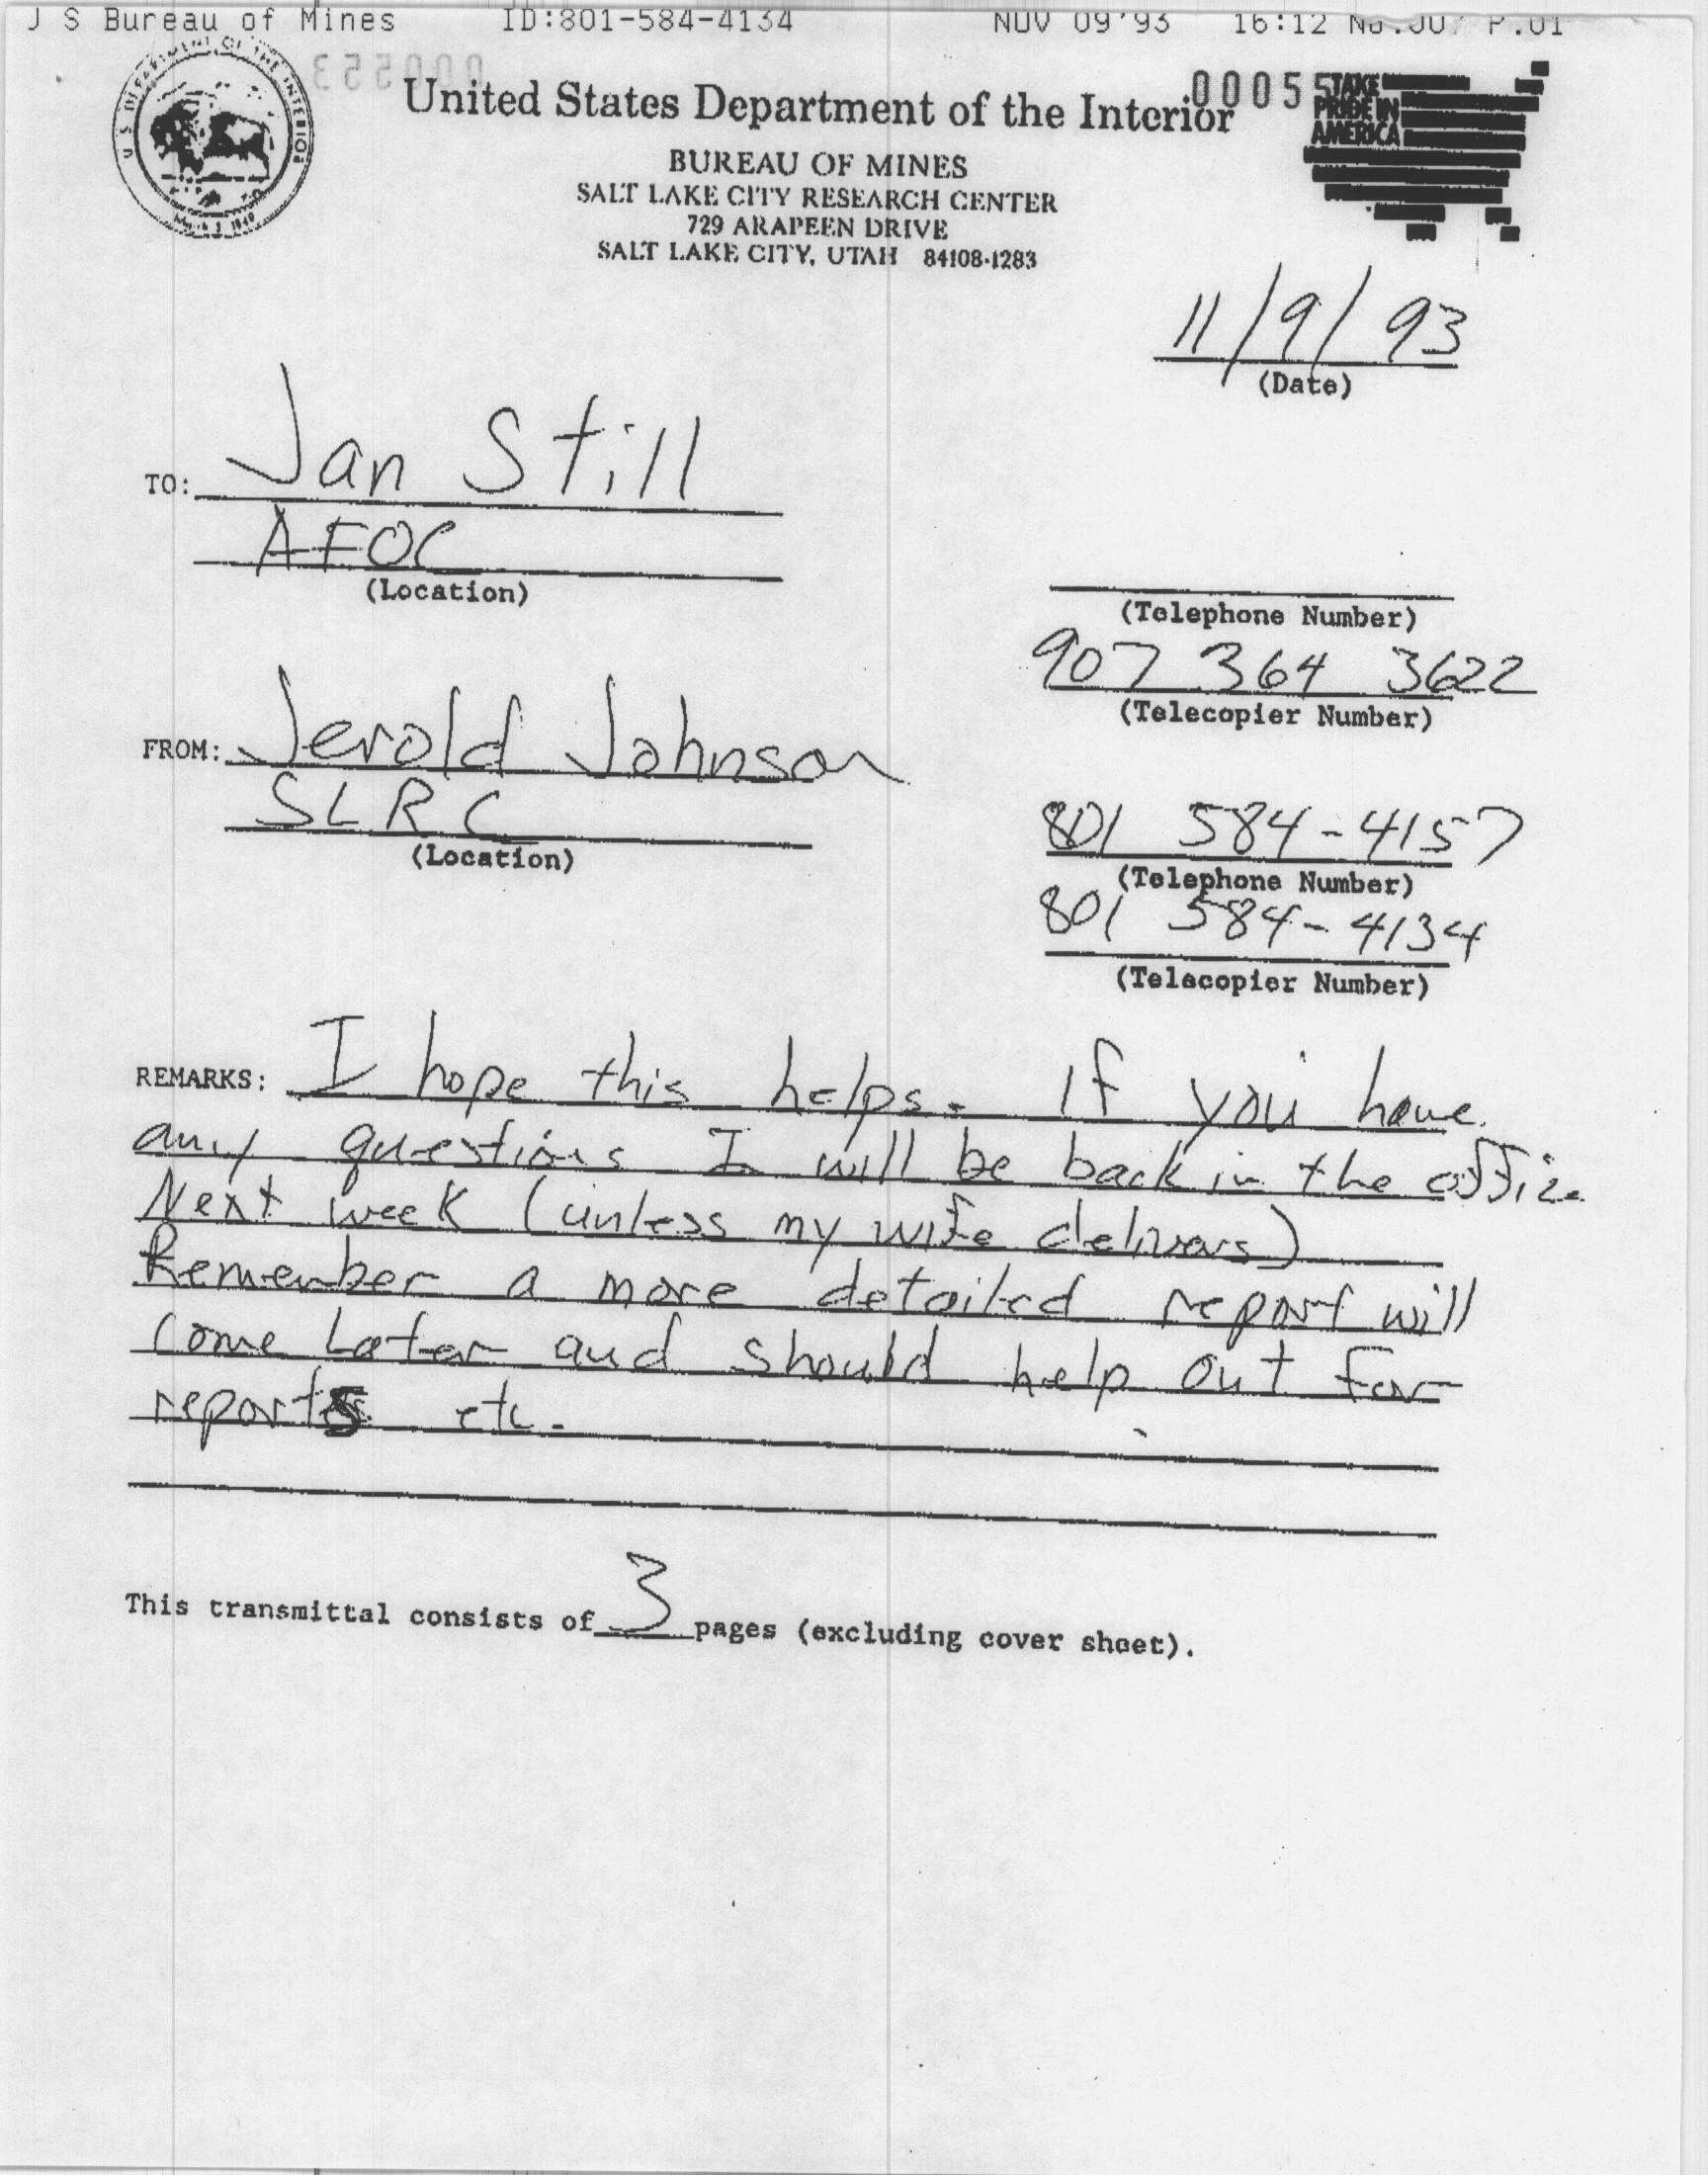 J S Bureau of Mines ID:801-584-4134 NOV 09'93 16:12 No.007 P.01
000553
United States Department of the Interior
00055
TAKE
PRIDE IN
AMERICA
U. S. DEPARTMENT OF THE INTERIOR
March 3, 1849
BUREAU OF MINES
SALT LAKE CITY RESEARCH CENTER
729 ARAPEEN DRIVE
SALT LAKE CITY, UTAH 84108-1283
11/9/93
(Date)
TO: Jan Still
AFOC
(Location)
(Telephone Number)
907 364 3622
(Telecopier Number)
FROM: Jerold Johnson
SLRC
(Location)
801 584-4157
(Telephone Number)
801 584-4134
(Telecopier Number)
REMARKS: I hope this helps. If you have
any questions I will be back in the office
Next week (unless my wife delivers)
Remember a more detailed report will
come Later and should help out for
reports etc.
This transmittal consists of 3 pages (excluding cover sheet).